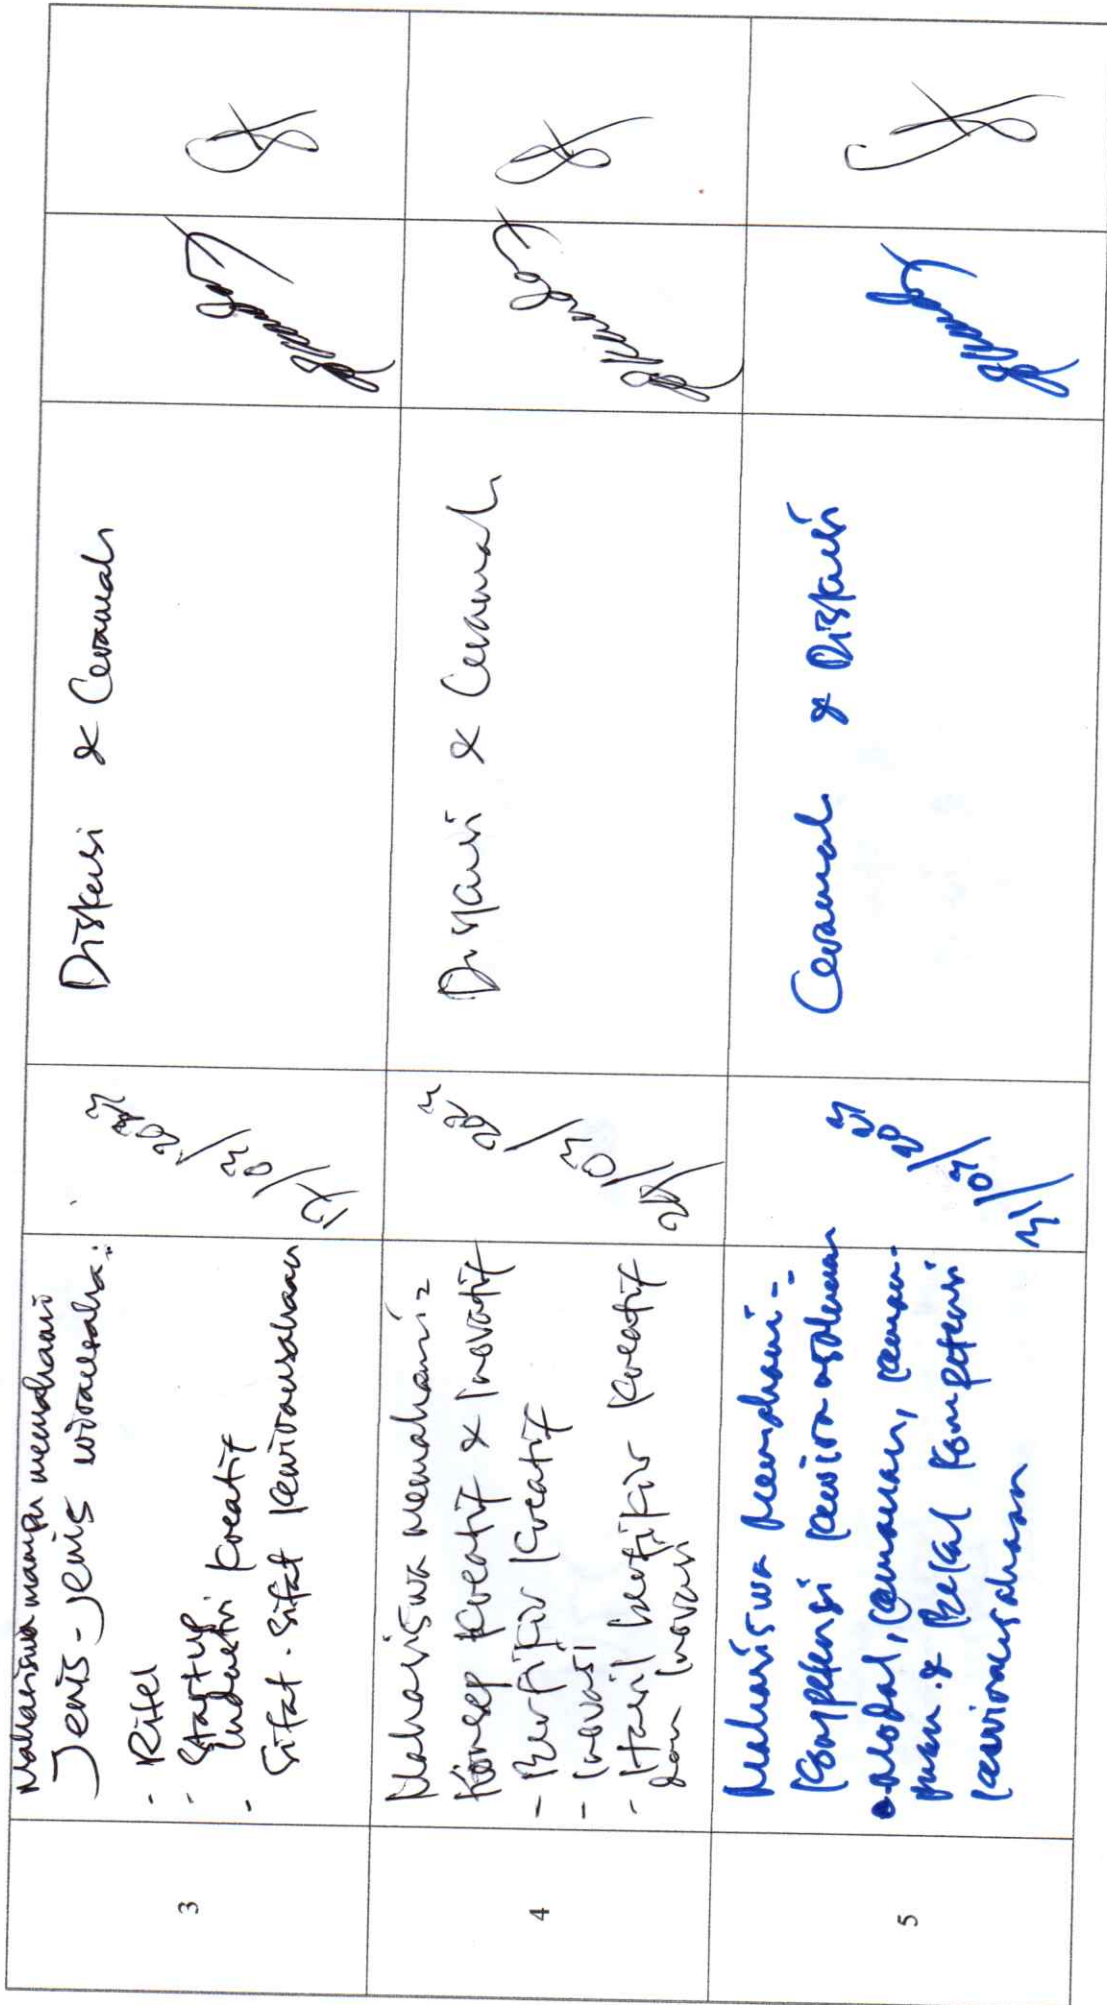 3
Mahasiswa mampu memahami
Jenis-jenis wirausaha:
- Ritel
- Startup
Industri Kreatif
- Sifat-sifat kewirausahaan
17/03/2023
Diskusi & Ceramah
4
Mahasiswa memahami:
Konsep Kreatif & Inovatif
- Berfikir Kreatif
- Inovasi
- Hasil berfikir Kreatif
dan Inovasi
Diskusi & Ceramah
5
Mahasiswa Memahami:
Kompetensi kewirausahaan
Modal, kemauan, kemam-
puan & Bekal Kompetensi
kewirausahaan
Ceramah & Diskusi